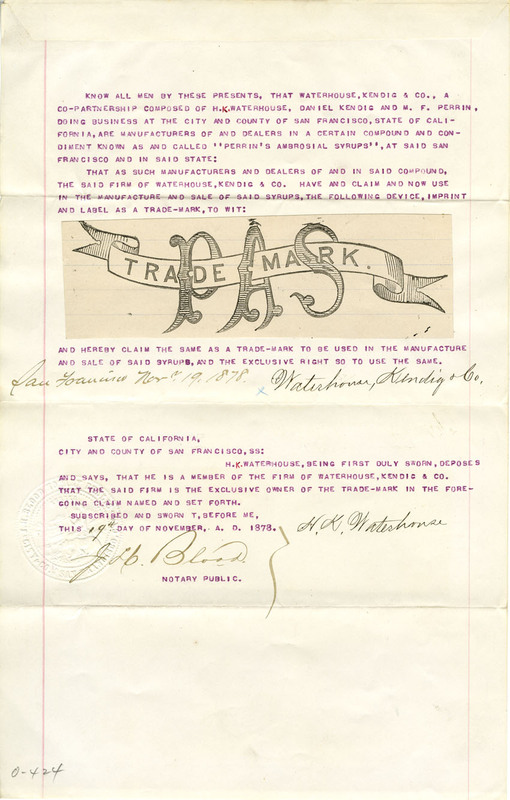 KNOW ALL MEN BY THESE PRESENTS, THAT WATERHOUSE, KENDIG & CO., A
CO-PARTNERSHIP COMPOSED OF H.K.WATERHOUSE, DANIEL KENDIG AND M. F. PERRIN,
DOING BUSINESS AT THE CITY AND COUNTY OF SAN FRANCISCO, STATE OF CALI-
FORNIA, ARE MANUFACTURERS OF AND DEALERS IN A CERTAIN COMPOUND AND CON-
DIMENT KNOWN AS AND CALLED "PERRIN'S AMBROSIAL SYRUPS", AT SAID SAN
FRANCISCO AND IN SAID STATE:
THAT AS SUCH MANUFACTURERS AND DEALERS OF AND IN SAID COMPOUND,
THE SAID FIRM OF WATERHOUSE, KENDIG & CO. HAVE AND CLAIM AND NOW USE
IN THE MANUFACTURE AND SALE OF SAID SYRUPS, THE FOLLOWING DEVICE, IMPRINT
AND LABEL AS A TRADE-MARK, TO WIT:
PAS
TRADE MARK.
AND HEREBY CLAIM THE SAME AS A TRADE-MARK TO BE USED IN THE MANUFACTURE
AND SALE OF SAID SYRUPS, AND THE EXCLUSIVE RIGHT SO TO USE THE SAME.
San Francisco Nov. 19, 1878. Waterhouse, Kendig & Co.
STATE OF CALIFORNIA,
CITY AND COUNTY OF SAN FRANCISCO, SS:
H.K.WATERHOUSE, BEING FIRST DULY SWORN, DEPOSES
AND SAYS, THAT HE IS A MEMBER OF THE FIRM OF WATERHOUSE, KENDIG & CO.
THAT THE SAID FIRM IS THE EXCLUSIVE OWNER OF THE TRADE-MARK IN THE FORE-
GOING CLAIM NAMED AND SET FORTH.
SUBSCRIBED AND SWORN T, BEFORE ME,
THIS 19th DAY OF NOVEMBER, A. D. 1878. H. K. Waterhouse
Blood
NOTARY PUBLIC.
0-424